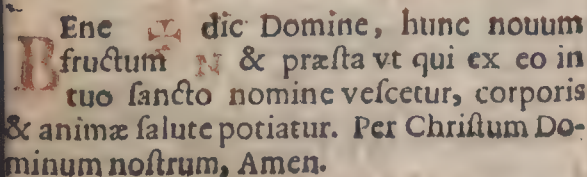 BEne ✠ dic Domine, hunc nouum
fructum N & præsta vt qui ex eo in
tuo ſancto nomine veſcetur, corporis
& animæ ſalute potiatur. Per Chriſtum Do-
minum noſtrum, Amen.